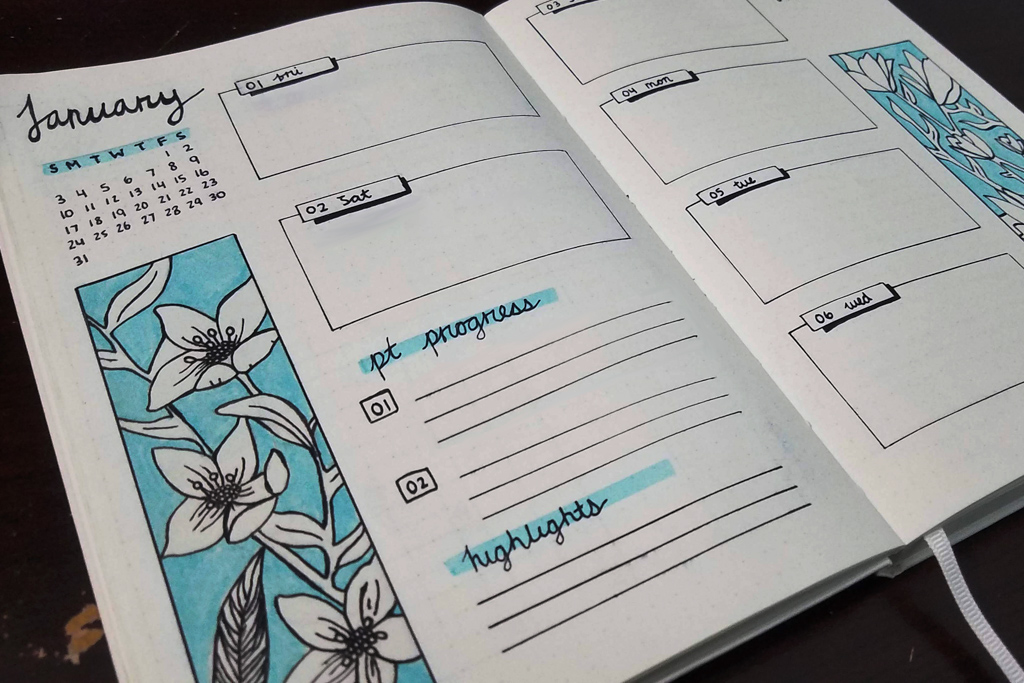 January
S M T W T F S
1 2
3 4 5 6 7 8 9
10 11 12 13 14 15 16
17 18 19 20 21 22 23
24 25 26 27 28 29 30
31
01 fri
02 Sat
pt progress
01
02
highlights
03
04 mon
05 tue
06 wed